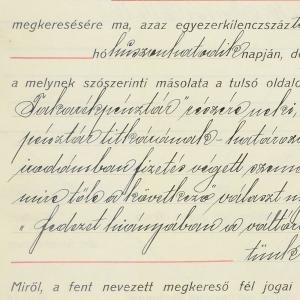 megkeresésére ma, azaz egyezerkilencszáz
hó huszonhatodik napján, d
a melynek szószerinti másolata a tulsó oldalo
Takarékpénztár" részére neki,
pénztár titkárának - határoz
irodámban fizetés végett szem
mire tőle a következő választ n
" Fedezet hiányában a váltó
tünk
Miről, a fent nevezett megkereső fél jogai